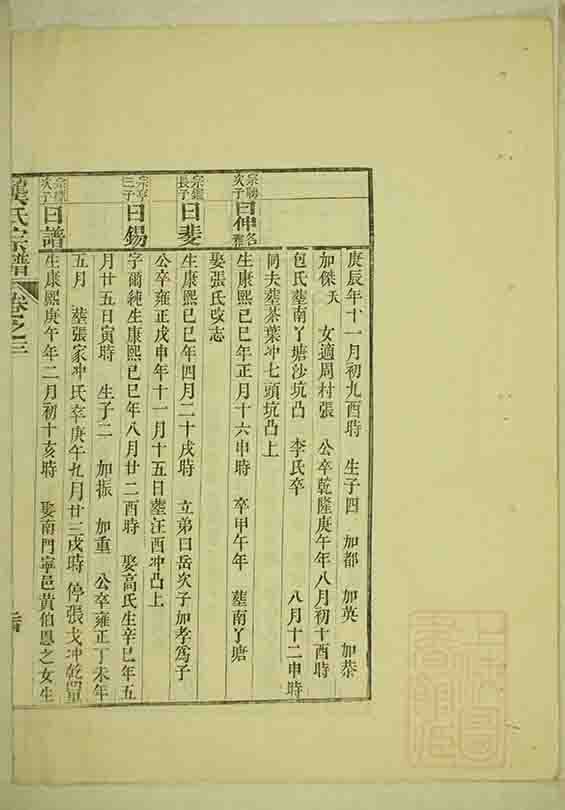 庚辰年十一月初九酉時 生子四 加都 加英 加恭
加傑 夭 女適周村張 公卒乾隆庚午年八月初十酉時
包氏塟南丫塘沙坑凸 李氏卒 八月十二申時
同夫塟茶葉冲七頭坑凸上
宗勝次子 曰伸 名
生康熙己巳年正月十六申時 卒甲午年 塟南丫塘
娶張氏改志
宗鑑長子 曰斐
生康熙己巳年四月二十戌時 立弟曰岳次子加孝爲子
公卒雍正戊申年十一月十五日塟汪酉冲凸上
宗亭三子 曰錫
字爾純生康熙己巳年八月廿二酉時 娶高氏生辛巳年五
月廿五日寅時 生子二 加振 加重 公卒雍正丁未年
五月 塟張家冲氏卒庚午九月廿三戌時 停張戈冲乾
次子 曰譜
生康熙庚午年二月初十亥時 娶南門寧邑黃伯恩之女生
氏宗譜 卷之三